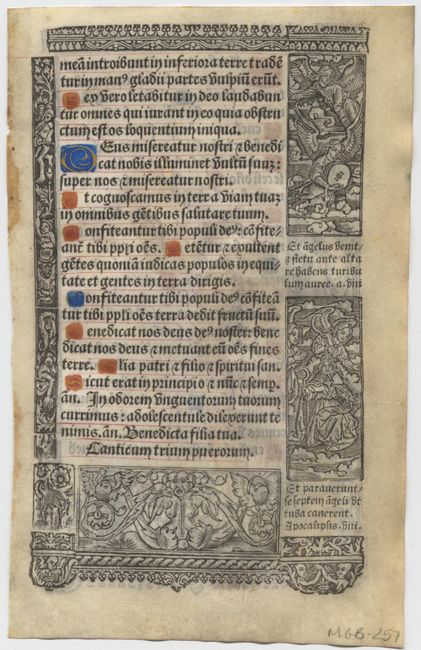 meā introibunt in inferiora terre tradē
tur in manꝰ gladii partes vulpiū erūt.
ex vero letabitur in deo laudabun
tur omnes qui iurant in eo quia obstru
ctum est os loquentium iniqua.
Eus misereatur nostri ⁊ benedi
cat nobis illuminet vultū suū:
super nos ⁊ misereatur nostri.
t cognoscamus in terra viam tuaʒ
in omnibus gētibus salutare tuum.
onfiteantur tibi populi deꝰ: cōfite-
anť tibi ppli oēs. etētur ⁊ exultent
gētes quoniā iudicas populos in equi-
tate et gentes in terra dirigis.
onfiteantur tibi populi deꝰ cōfiteā
tur tibi ppli oēs terra dedit fructū suū.
enedicat nos deus deꝰ noster: bene
dicat nos deus ⁊ metuant eū oēs fines
terre. lia patri ⁊ filio ⁊ spiritui san.
icut erat in principio ⁊ nūc ⁊ semp.
an̄. In odorem vnguentorum tuorum
currimus: adolescentule dilexerunt te
nimis. an̄. Benedicta filia tua.
Canticum trium puerorum.
Et āgelus venit,
⁊ stetit ante alta
re habens turibu
lum auree. a. viii
Et paraverunt
se septem āgeli vt
tuba canerent.
Apocalipsis. viii.
MGB-257